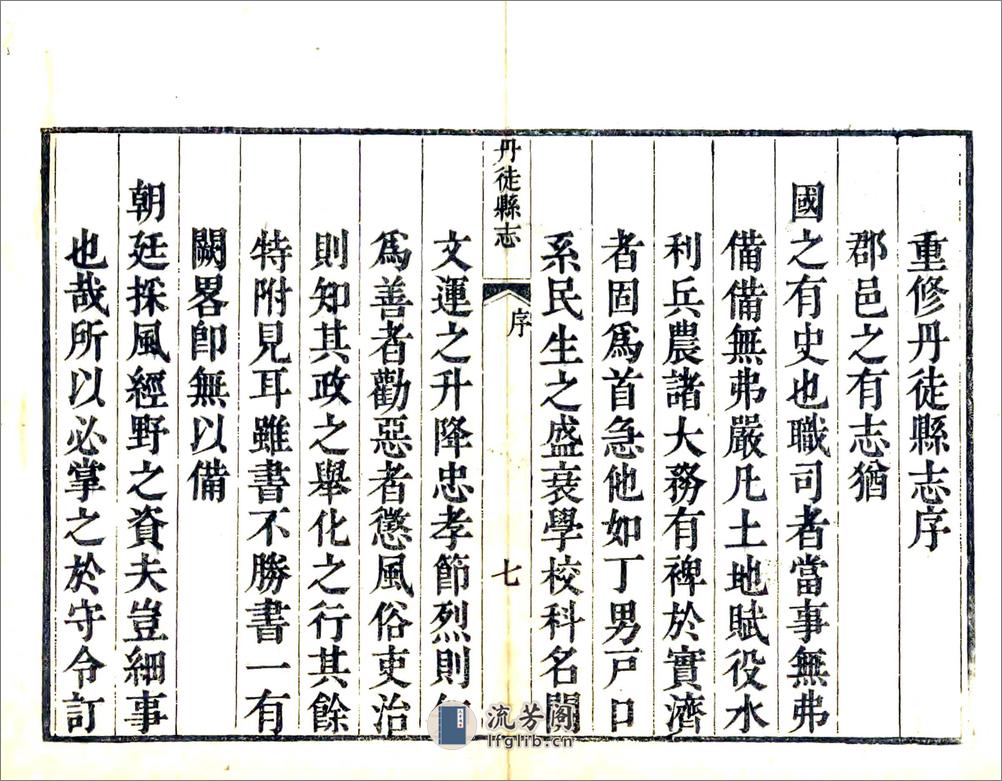 重修丹徒縣志序
郡邑之有志猶
國之有史也職司者當事無弗
備備無弗嚴凡土地賦役水
利兵農諸大務有裨於實濟
者固爲首急他如丁男戸口
系民生之盛衰學校科名關
丹徒縣志
序
七
文運之升降忠孝節烈則
爲善者勸惡者懲風俗吏治
則知其政之舉化之行其餘
特附見耳雖書不勝書一有
闕畧卽無以備
朝廷採風經野之資夫豈細事
也哉所以必掌之於守令訂
流芳閣
lfglib.cn